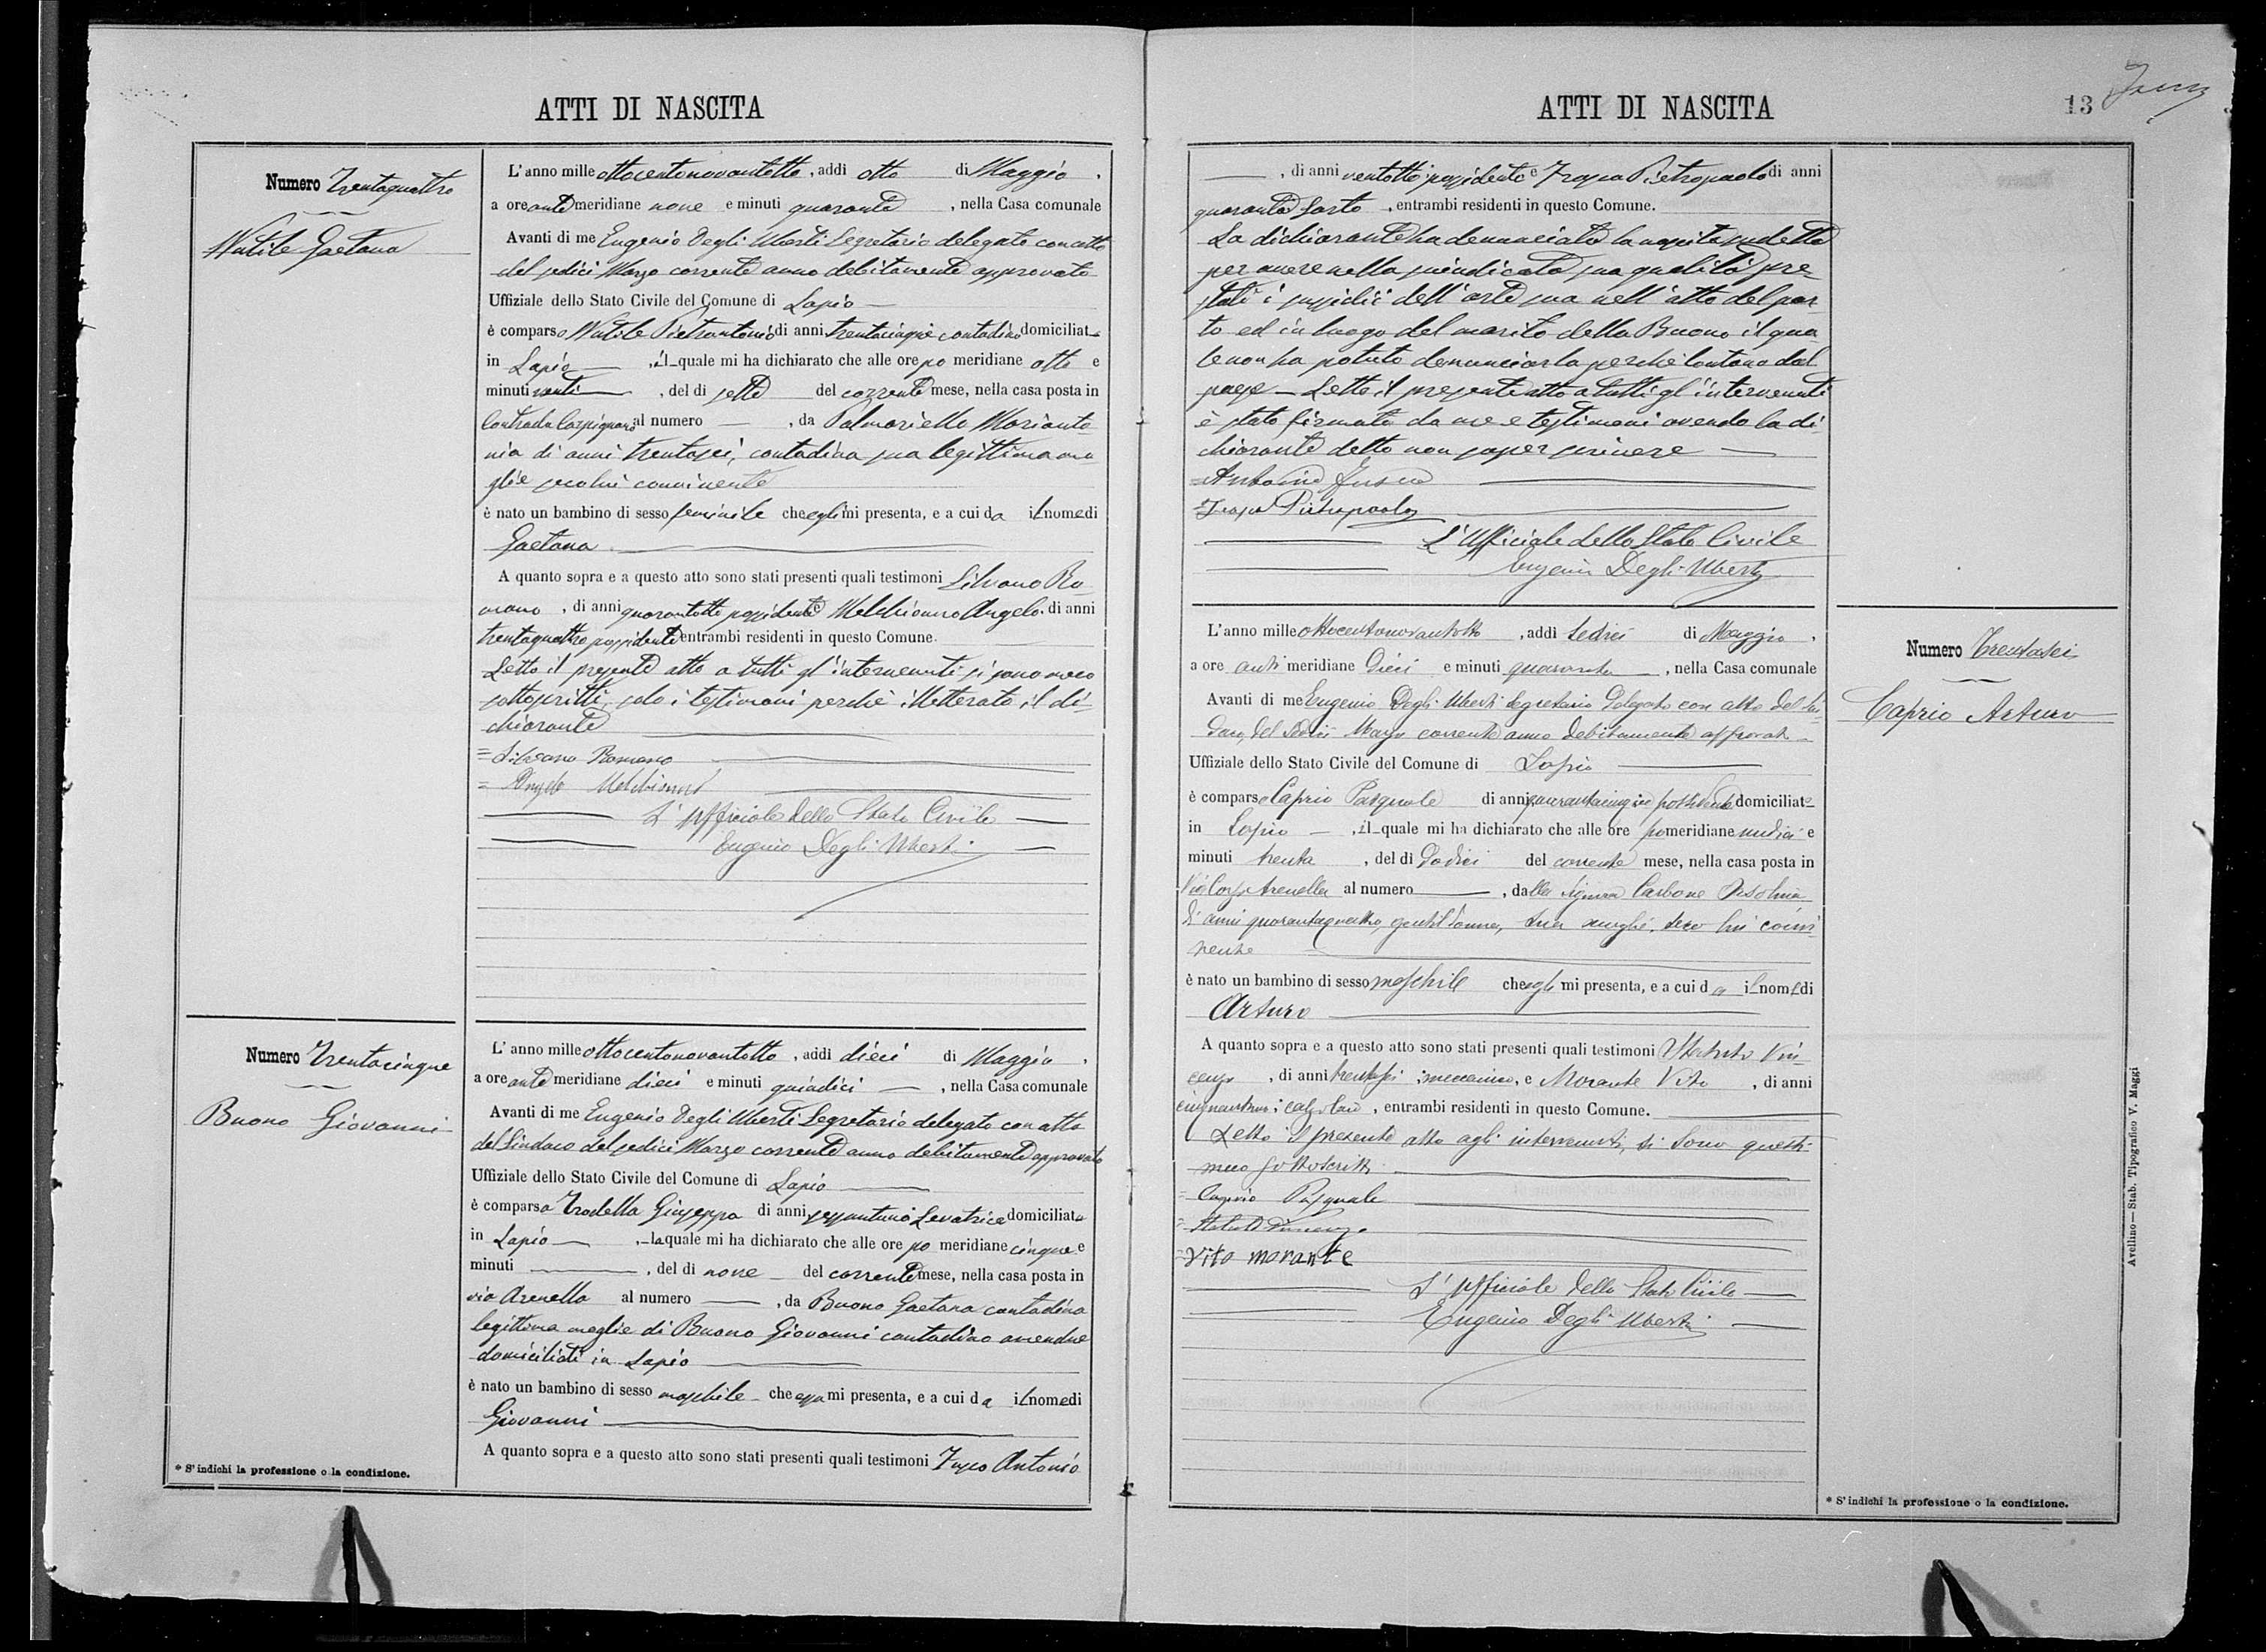 ATTI DI NASCITA
Numero Trentaquattro
Nutile Gaetana
L'anno mille ottocentonovantotto, addì otto di Maggio,
a ore ante meridiane nove e minuti quaranta, nella Casa comunale
Avanti di me Eugenio Degli Uberti Segretario delegato con atto
del sedici Marzo corrente anno debitamente approvato
Uffiziale dello Stato Civile del Comune di Lapio
è comparso Nutile Pietrantonio di anni trentacinque contadino domiciliato
in Lapio, il quale mi ha dichiarato che alle ore po meridiane otto e
minuti venti, del dì sette del corrente mese, nella casa posta in
Contrada Carpignano al numero —, da Palmariello Marianto-
nia di anni trentasei, contadina sua legittima mo-
glie secolui convivente
è nato un bambino di sesso feminile che egli mi presenta, e a cui da il nome di
Gaetana
A quanto sopra e a questo atto sono stati presenti quali testimoni Silvano Ro-
mano, di anni quarantotto possidente e Melchionno Angelo, di anni
trentaquattro possidente entrambi residenti in questo Comune.
Letto il presente atto a tutti gl'intervenuti si sono meco
sottoscritti, solo i testimoni perchè illetterato il di-
chiarante
= Silvano Romano
= Angelo Melchionno
L'Ufficiale dello Stato Civile
Eugenio Degli Uberti
Numero Trentacinque
Buono Giovanni
L'anno mille ottocentonovantotto, addì dieci di Maggio,
a ore ante meridiane dieci e minuti quindici, nella Casa comunale
Avanti di me Eugenio Degli Uberti Segretario delegato con atto
del Sindaco del sedici Marzo corrente anno debitamente approvato
Uffiziale dello Stato Civile del Comune di Lapio
è comparsa Trodella Giuseppa di anni sessantuno Levatrice domiciliata
in Lapio, la quale mi ha dichiarato che alle ore po meridiane cinque e
minuti —, del dì nove del corrente mese, nella casa posta in
via Arenella al numero —, da Buono Gaetana contadina
legittima moglie di Buono Giovanni contadino amendue
domiciliati in Lapio
è nato un bambino di sesso maschile che essa mi presenta, e a cui da il nome di
Giovanni
A quanto sopra e a questo atto sono stati presenti quali testimoni Fusco Antonio
* S'indichi la professione o la condizione.
ATTI DI NASCITA
13
—, di anni ventotto possidente e Pietropaolo di anni
quaranta Sarto, entrambi residenti in questo Comune.
La dichiarante ha denunciato la nascita sudetta
per avere nella suindicata sua qualità pre-
stati i sussidii dell'arte sua nell'atto del par-
to ed in luogo del marito della Buono il qua-
le non ha potuto denunciarla perchè lontano dal
paese — Letto il presente atto a tutti gl'intervenuti
è stato firmato da me e testimoni avendo la di-
chiarante detto non saper scrivere —
= Antonio Fusco
Pietropaolo
L'Ufficiale dello Stato Civile
Eugenio Degli Uberti
Numero Trentasei
Caprio Arturo
L'anno mille ottocentonovantotto, addì sedici di Maggio,
a ore anti meridiane dieci e minuti quaranta, nella Casa comunale
Avanti di me Eugenio Degli Uberti Segretario Delegato con atto del Sin-
daco, del sedici Marzo corrente anno debitamente approvato
Uffiziale dello Stato Civile del Comune di Lapio
è comparso Caprio Pasquale di anni quarantacinque possidente domiciliato
in Lapio —, il quale mi ha dichiarato che alle ore pomeridiane undici e
minuti trenta, del dì dodici del corrente mese, nella casa posta in
Via Corso Arenella al numero —, dalla Signora Carbone
di anni quarantaquattro, gentildonna, sua moglie, seco lui convi-
vente
è nato un bambino di sesso maschile che egli mi presenta, e a cui da il nome di
Arturo
A quanto sopra e a questo atto sono stati presenti quali testimoni Statuto Vin-
cenzo, di anni trentasei, meccanico, e Morante Vito, di anni
cinquantuno; calzolaio, entrambi residenti in questo Comune.
Letto il presente atto agli intervenuti, si sono questi
meco sottoscritti
= Caprio Pasquale
= Statuto Vincenzo
= Vito morante
L'Ufficiale dello Stato Civile
Eugenio Degli Uberti
* S'indichi la professione o la condizione.
Avellino — Stab. Tipografico V. Maggi